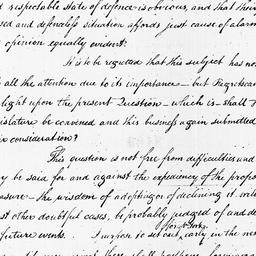 respectable State of defence is obvious, and that their
and defenceless situation affords just cause of alarm
opinion equally evident.
It is to be regretted that this subject has not
all the attention due to its importance — but Regrets can
light upon the present Question — which is — shall the
islature be convened and this business again submitted
consideration?
This question is not free from difficulties and
be said for and against the expediency of the propos
asure — the wisdom of adopting or declining it will
st other doubtful cases, be probably judged of and de
future events. I purpose to set out early in the ne
for